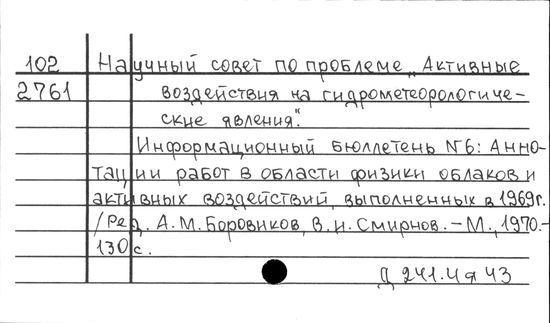 102 Научный совет по проблеме „Активные
2761 воздействия на гидрометеорологиче-
ские явления“.
Информационный бюллетень N6: Анно-
тации работ в области физики облаков и
активных воздействий, выполненных в 1969г.
/Ред. А.М. Боровиков, В.И. Смирнов. – М., 1970.-
130 с.
Д 241.4я43